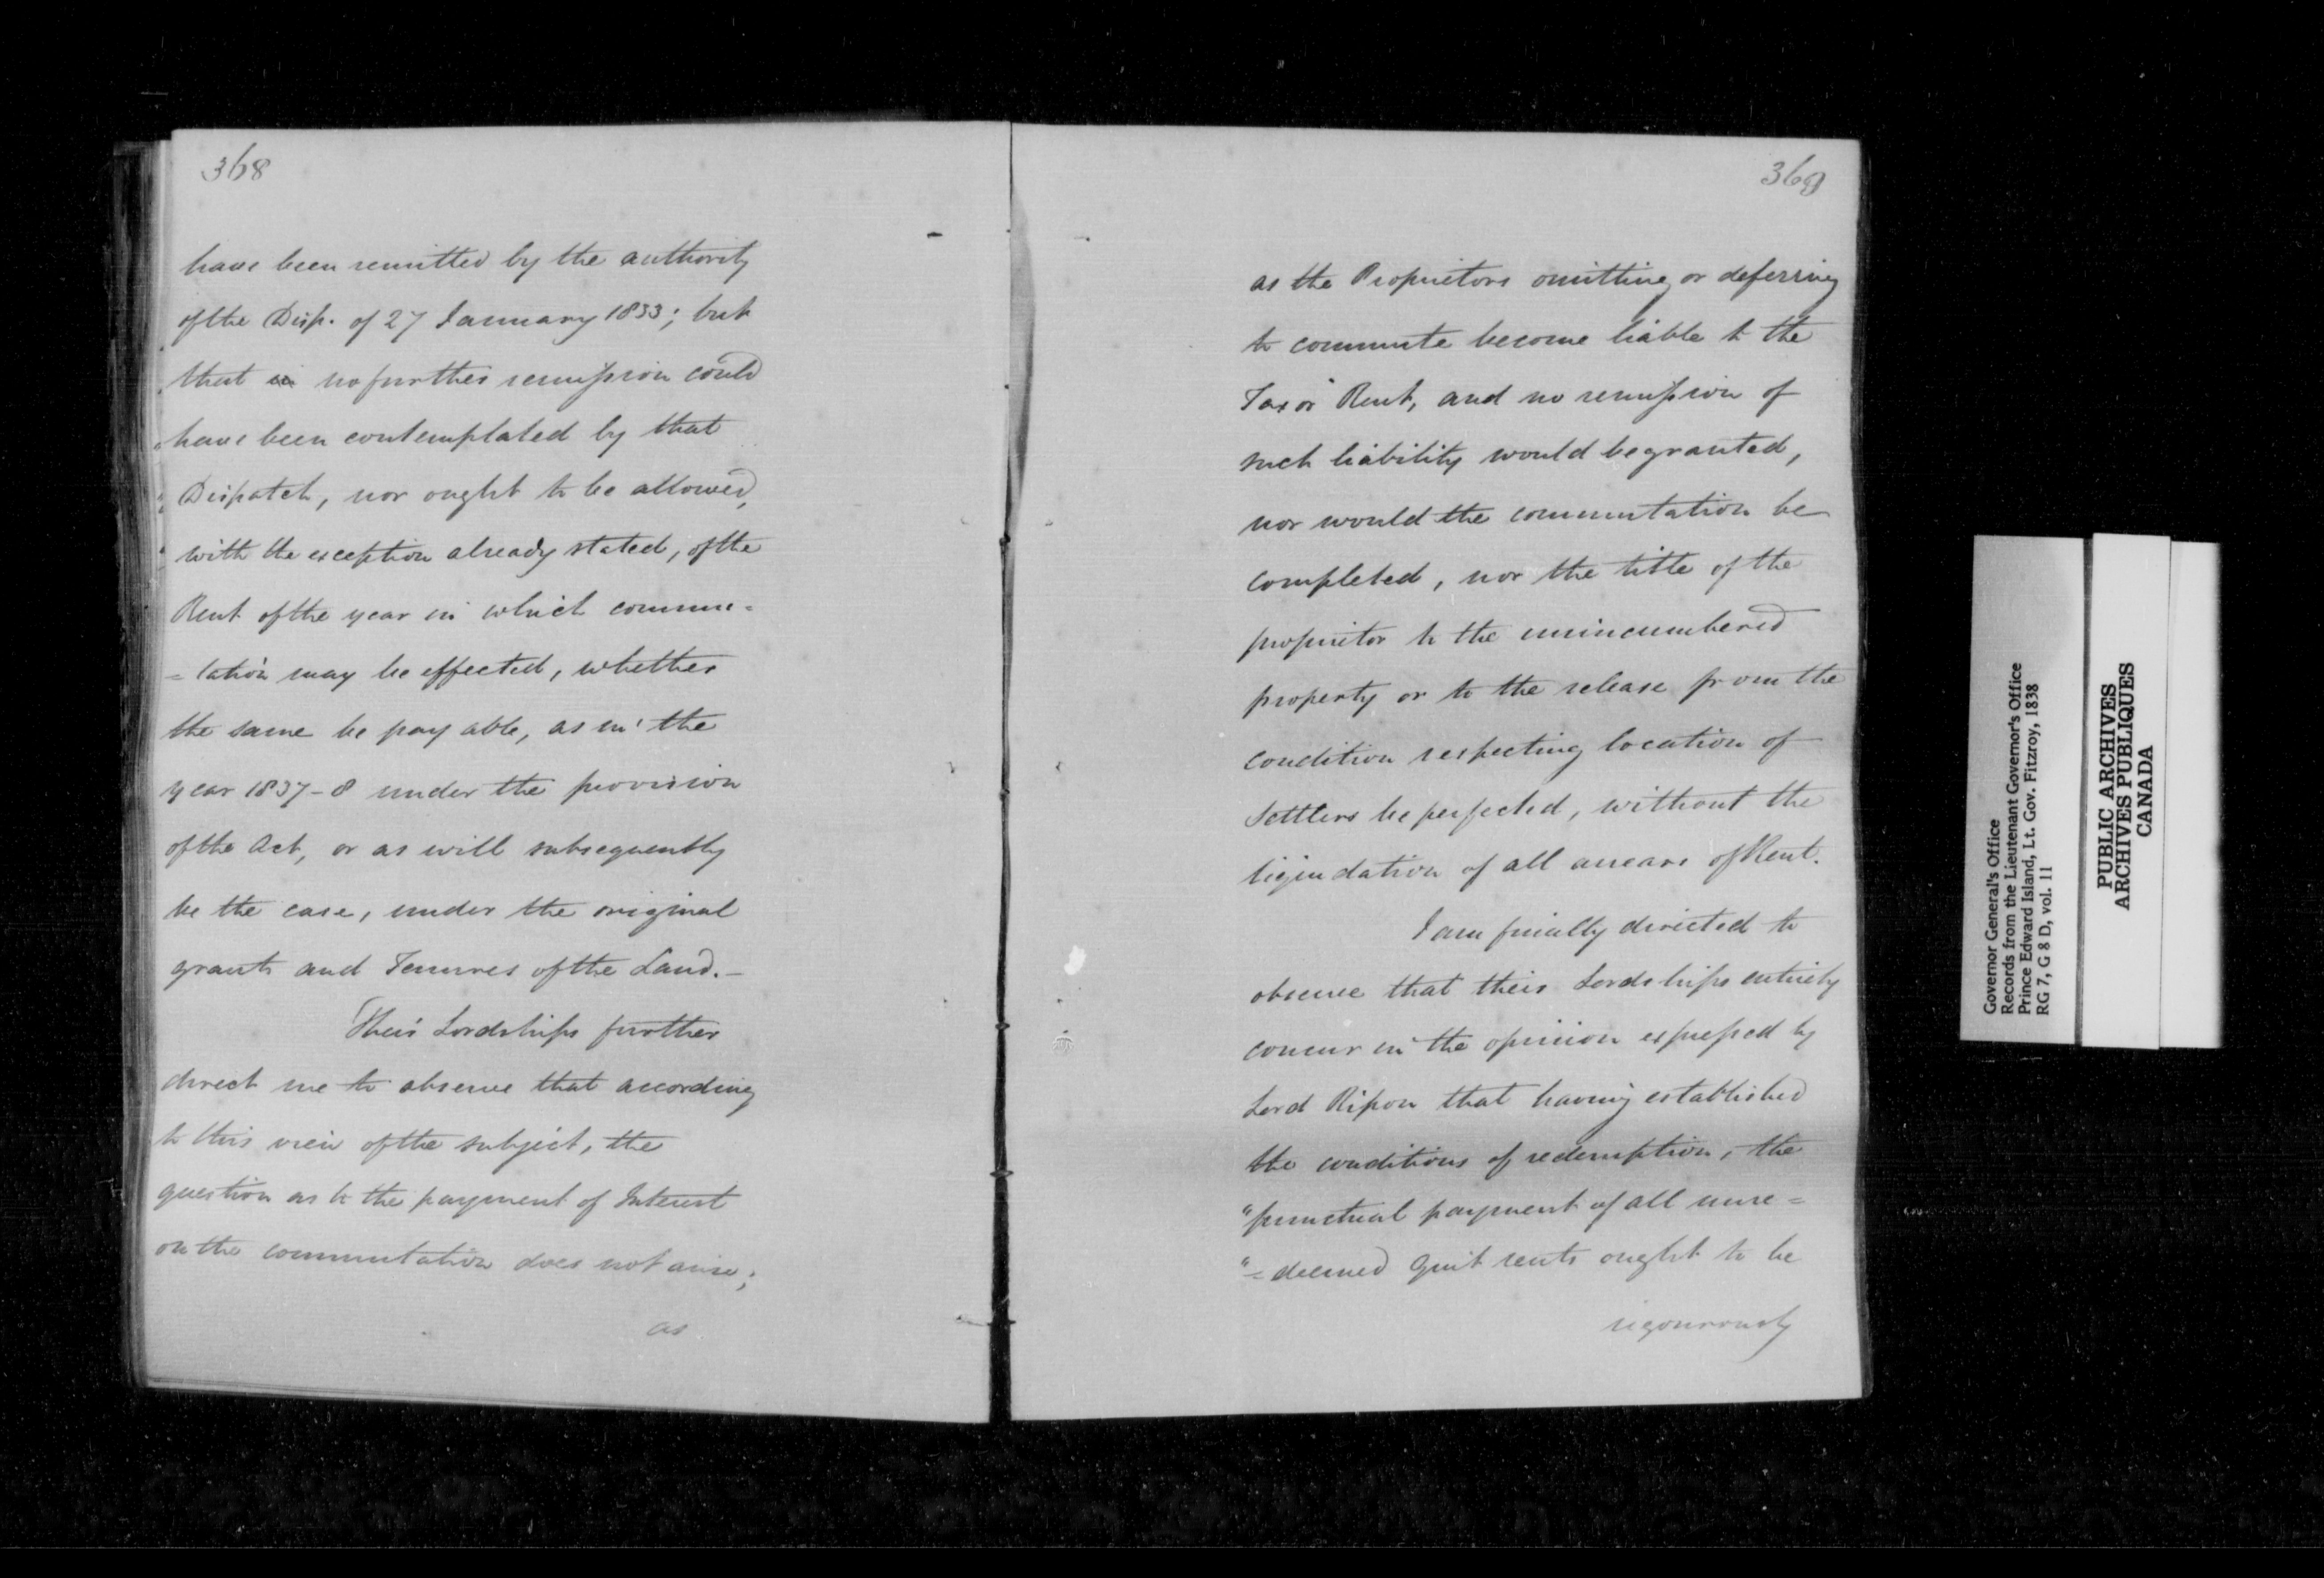 368
have been remitted by the authority
of the Disp. of 27 January 1833; but
that no further remission could
have been contemplated by that
Dispatch, nor ought to be allowed,
with the exception already stated, of the
Rent of the year in which commu=
=tation may be effected, whether
the same be payable, as in the
year 1837-8 under the provision
of the Act, or as will subsequently
be the case, under the original
grants and Tenures of the Land.-
Their Lordships further
direct me to observe that according
to this view of the subject, the
question as to the payment of Interest
on the commutation does not arise;
as
369
as the Proprietors omitting or deferring
to commute become liable to the
Tax or Rent, and no remission of
such liability would be granted,
nor would the commutation be
completed, nor the title of the
proprietor to the unincumbered
property or to the release from the
condition respecting location of
Settlers be perfected, without the
liquidation of all arrears of Rent.
I am finally directed to
observe that their Lordships entirely
concur in the opinion expressed by
Lord Ripon that having established
the conditions of redemption, the
"punctual payment of all unre=
"=deemed quit rents ought to be
rigourously
Governor General's Office
Records from the Lieutenant Governor's Office
Prince Edward Island, Lt. Gov. Fitzroy, 1838
RG 7, G 8 D, vol. 11
PUBLIC ARCHIVES
ARCHIVES PUBLIQUES
CANADA